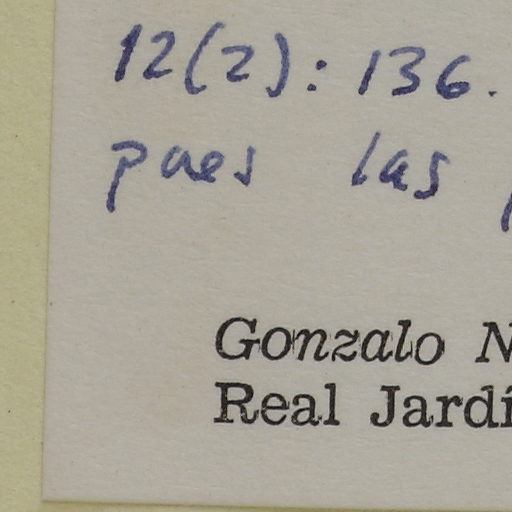 12(2): 136.
pues las
Gonzalo N
Real Jardí